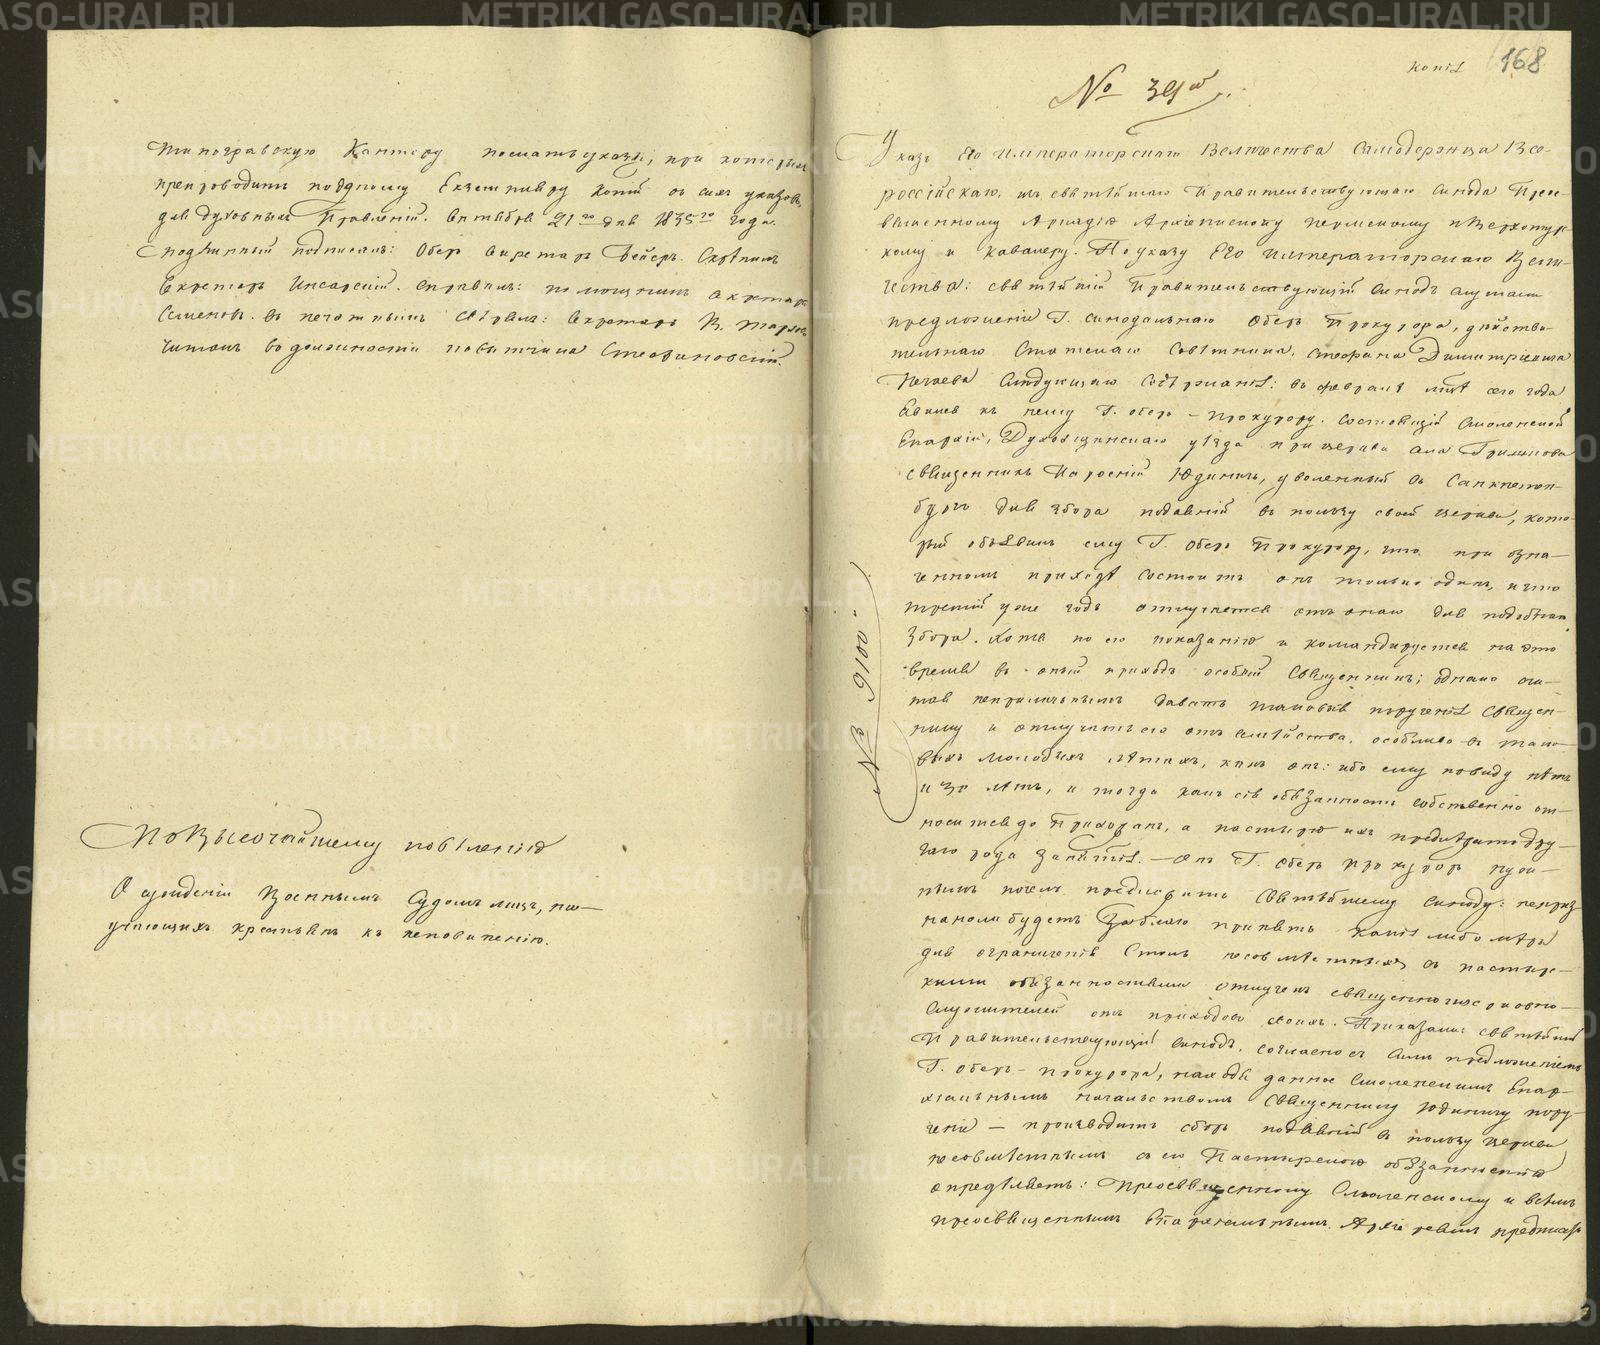 типографскую Контору послать указы, при которыхъ
препроводить по одному Екземпляру копій съ сихъ указовъ,
для духовныхъ Правленій. Сентября 21го дня 1835го года.
подлинный подписалъ: Оберъ Секретарь
Секретарь Инсарскій. Справилъ: помощникъ Секретаря
Семеновъ. Съ печатнымъ свѣрялъ: Секретарь
Читалъ въ должности повытчика Стефановскій.
По Высочайшему повѣленію
О сужденіи Военнымъ Судомъ лицъ, на-
учающихъ крестьянъ къ неповиненію.
копія 168
№ 39й
Указъ Его Императорскаго Величества Самодержца Все-
россійскаго, изъ святѣйшаго Правительствующаго Синода Прео-
священному Аркадію Архіепископу Пермскому и Верхотур-
кому и Кавалеру. По указу Его Императорскаго Вели-
чества: святѣйшій Правительствующій Синодъ слушали
предложеніе Г. Синодальнаго Оберъ Прокурора, дѣйстви-
тельнаго Статскаго Совѣтника, Стефана Дмитріевича
Нечаева слѣдующаго содержанія: въ февралѣ мцѣ сего года
явился къ нему Г. Оберъ-Прокурору, состоящій Смоленской
Епархіи, Духовщинскаго уѣзда при церкви села
священникъ Юденичь, уволенный въ Санкпетер-
бургъ для збора подаяній въ пользу своей церкви, кото-
рый объявилъ ему Г. Оберъ Прокурору, что при озна-
ченномъ приходѣ состоитъ онъ только одинъ, и что
третій уже годъ отлучается отъ онаго для подобнаго
збора. Хотя по его показанію и командируется на это
время въ оный приходъ особый Священникъ; однако счи-
тая неприличнымъ давать таковыя порученія Священ-
нику и отлучать его отъ семейства, особливо въ тако-
выхъ молодыхъ лѣтахъ, какъ онъ: ибо ему повиду нѣтъ
и 30 лѣтъ, и тогда какъ сія обязанность собственно от-
носится до Прихожанъ, а пастырю ихъ предлѣжитъ дру-
гаго рода занятія. — Онъ Г. Оберъ Прокуроръ нуж-
нымъ почелъ предъявить Святѣйшему Синоду: непризна-
но ли будетъ за благо принять какія либо мѣры
для ограниченія столь несовмѣстныхъ съ пастыр-
скими обязанностями отлучекъ священноцерковно-
служителей отъ приходовъ своихъ. Приказали: святѣйшій
Правительствующій Синодъ, согласно съ симъ предложеніемъ
Г. Оберъ-Прокурора, находя данное Смоленскимъ Епар-
хіальнымъ начальствомъ Священнику Юденичу пору-
ченіе — производить сборъ подаяній въ пользу церкви
несовмѣстнымъ съ его Пастырскою обязанностію
опредѣляетъ: Преосвященному Смоленскому и всѣмъ
преосвященнымъ Епархіальнымъ Архіереямъ предписать
№ 9100